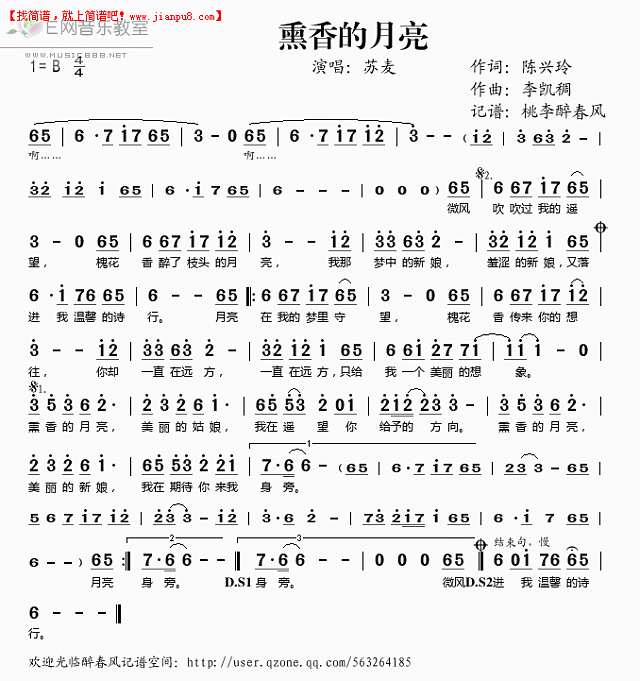 【找简谱，就上简谱吧！www.jianpu8.com】
E网音乐教室
WWW.MUSIC888.NET
熏香的月亮
1=B 4/4 演唱：苏麦 作词：陈兴玲
作曲：李凯稠
记谱：桃李醉春风
65 | 6 ·7 17 65 | 3 - 0 65 | 6 ·7 17 12 | 3 - - (12 | 3 63 2 - |
啊…… 啊……
32 12 1 65 | 1 ·6 17 65 | 6 - - - | 0 0 0) 65 | 6 67 17 65 |
微风 吹 吹过 我的 遥
3 - 0 65 | 6 67 17 12 | 3 - - 12 | 33 63 2 - | 32 12 1 65 |
望， 槐花 香 醉了 枝头 的月 亮， 我那 梦中 的新 娘， 羞涩 的新 娘，又落
6 ·1 76 65 | 6 - - 65 |: 6 67 17 65 | 3 - 0 65 | 6 67 17 12 |
进 我 温馨 的诗 行。 月亮 在 我的 梦里 守 望， 槐花 香 传来 你的 想
3 - - 12 | 33 63 2 - | 33 63 2 12 | 3 3 2 71 | 11 1 - 0 |
往， 你却 一直 在远 方， 一直 在远 方，只给 我 一个 美丽 的想 象。
3 5 3 6 2· | 2 3 6 2 1· | 65 53 2 01 | 212 23 3 - | 3 5 3 6 2· |
熏香 的 月 亮， 美丽 的 姑 娘， 我在 遥 望 你 给予 的 方 向。 熏香 的 月 亮，
2 3 6 2 1· | 65 53 2 21 | 7· 6 6 - (65 | 6 ·7 17 65 | 23 3 - 65 |
美丽 的 新 娘， 我在 期待 你 来我 身 旁。
56 7 17 12 | 23 3 - 12 | 3 ·6 2 - | 73 217 1 65 | 6 ·1 17 65 |
结束句，慢
6 - -) 65 :| 7· 6 6 - :| 7· 6 6 - 65 || 6 01 76 65 |
月亮 身 旁。 D.S1 身 旁。 微风D.S2 进 我 温馨 的诗
6 - - ||
行。
欢迎光临醉春风记谱空间：http://user.qzone.qq.com/563264185